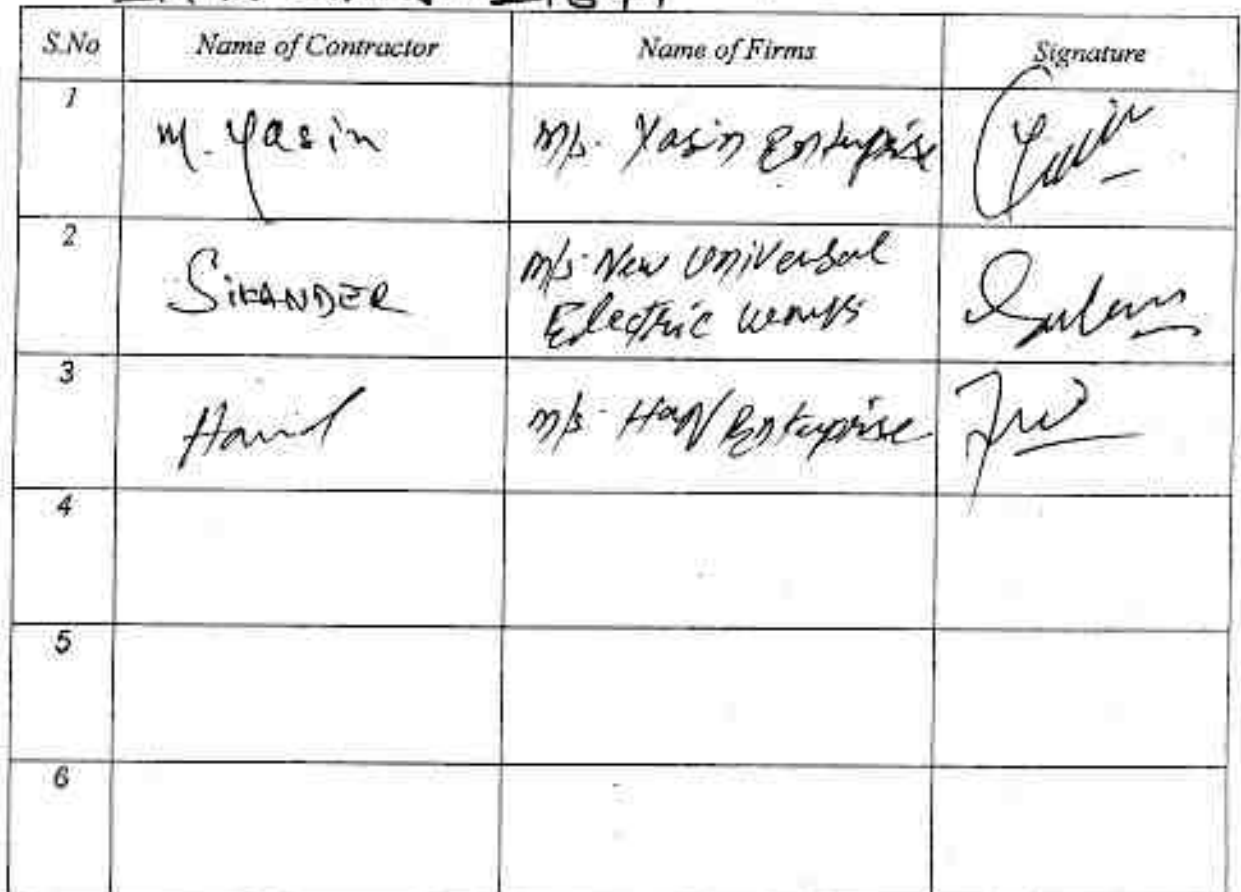 S.No Name of Contractor Name of Firms Signature
1 M. Yasin M/s. Yasin Enterprise
2 SIKANDER M/s. New Universal
Electric Works
3 Hamid M/s. Enterprise
4
5
6